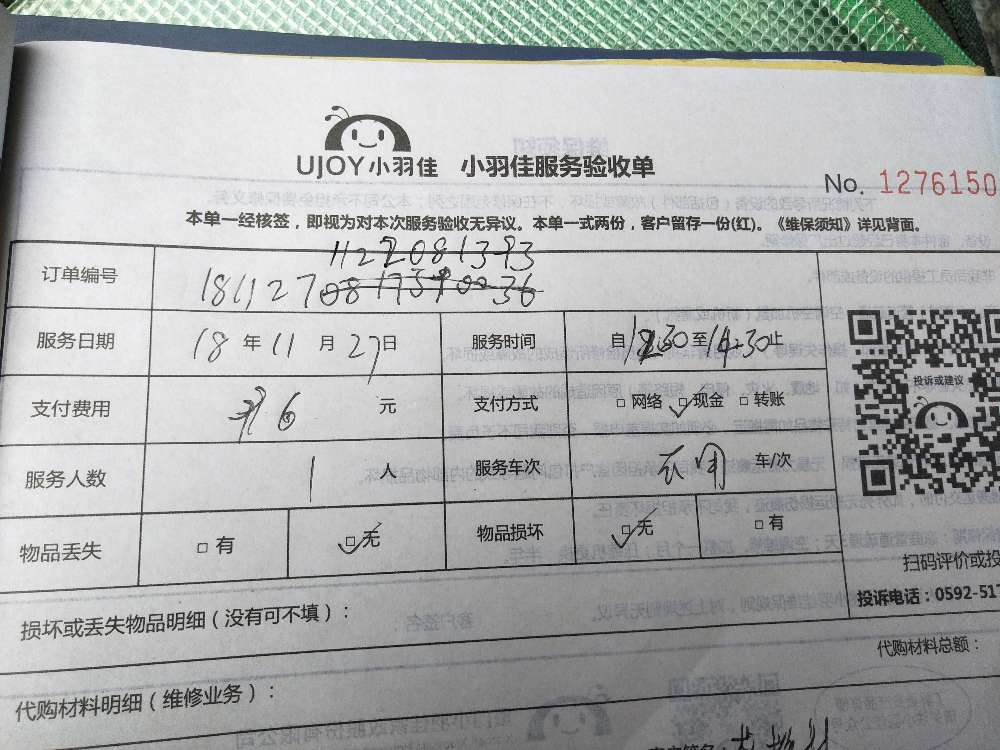 UJOY小羽佳 小羽佳服务验收单
No. 1276150
本单一经核签，即视为对本次服务验收无异议。本单一式两份，客户留存一份(红)。《维保须知》详见背面。
1122081393
订单编号 181127
服务日期 18 年 11 月 27 日 服务时间 自 至 止
支付费用 元 支付方式 □ 网络 □ 现金 □ 转账
投诉或建议
服务人数 1 服务车次 车/次
物品丢失 □ 有 □ 无 物品损坏 □ 无 □ 有
扫码评价或投
投诉电话：0592-517
损坏或丢失物品明细（没有可不填）：
代购材料总额：
代购材料明细（维修业务）：